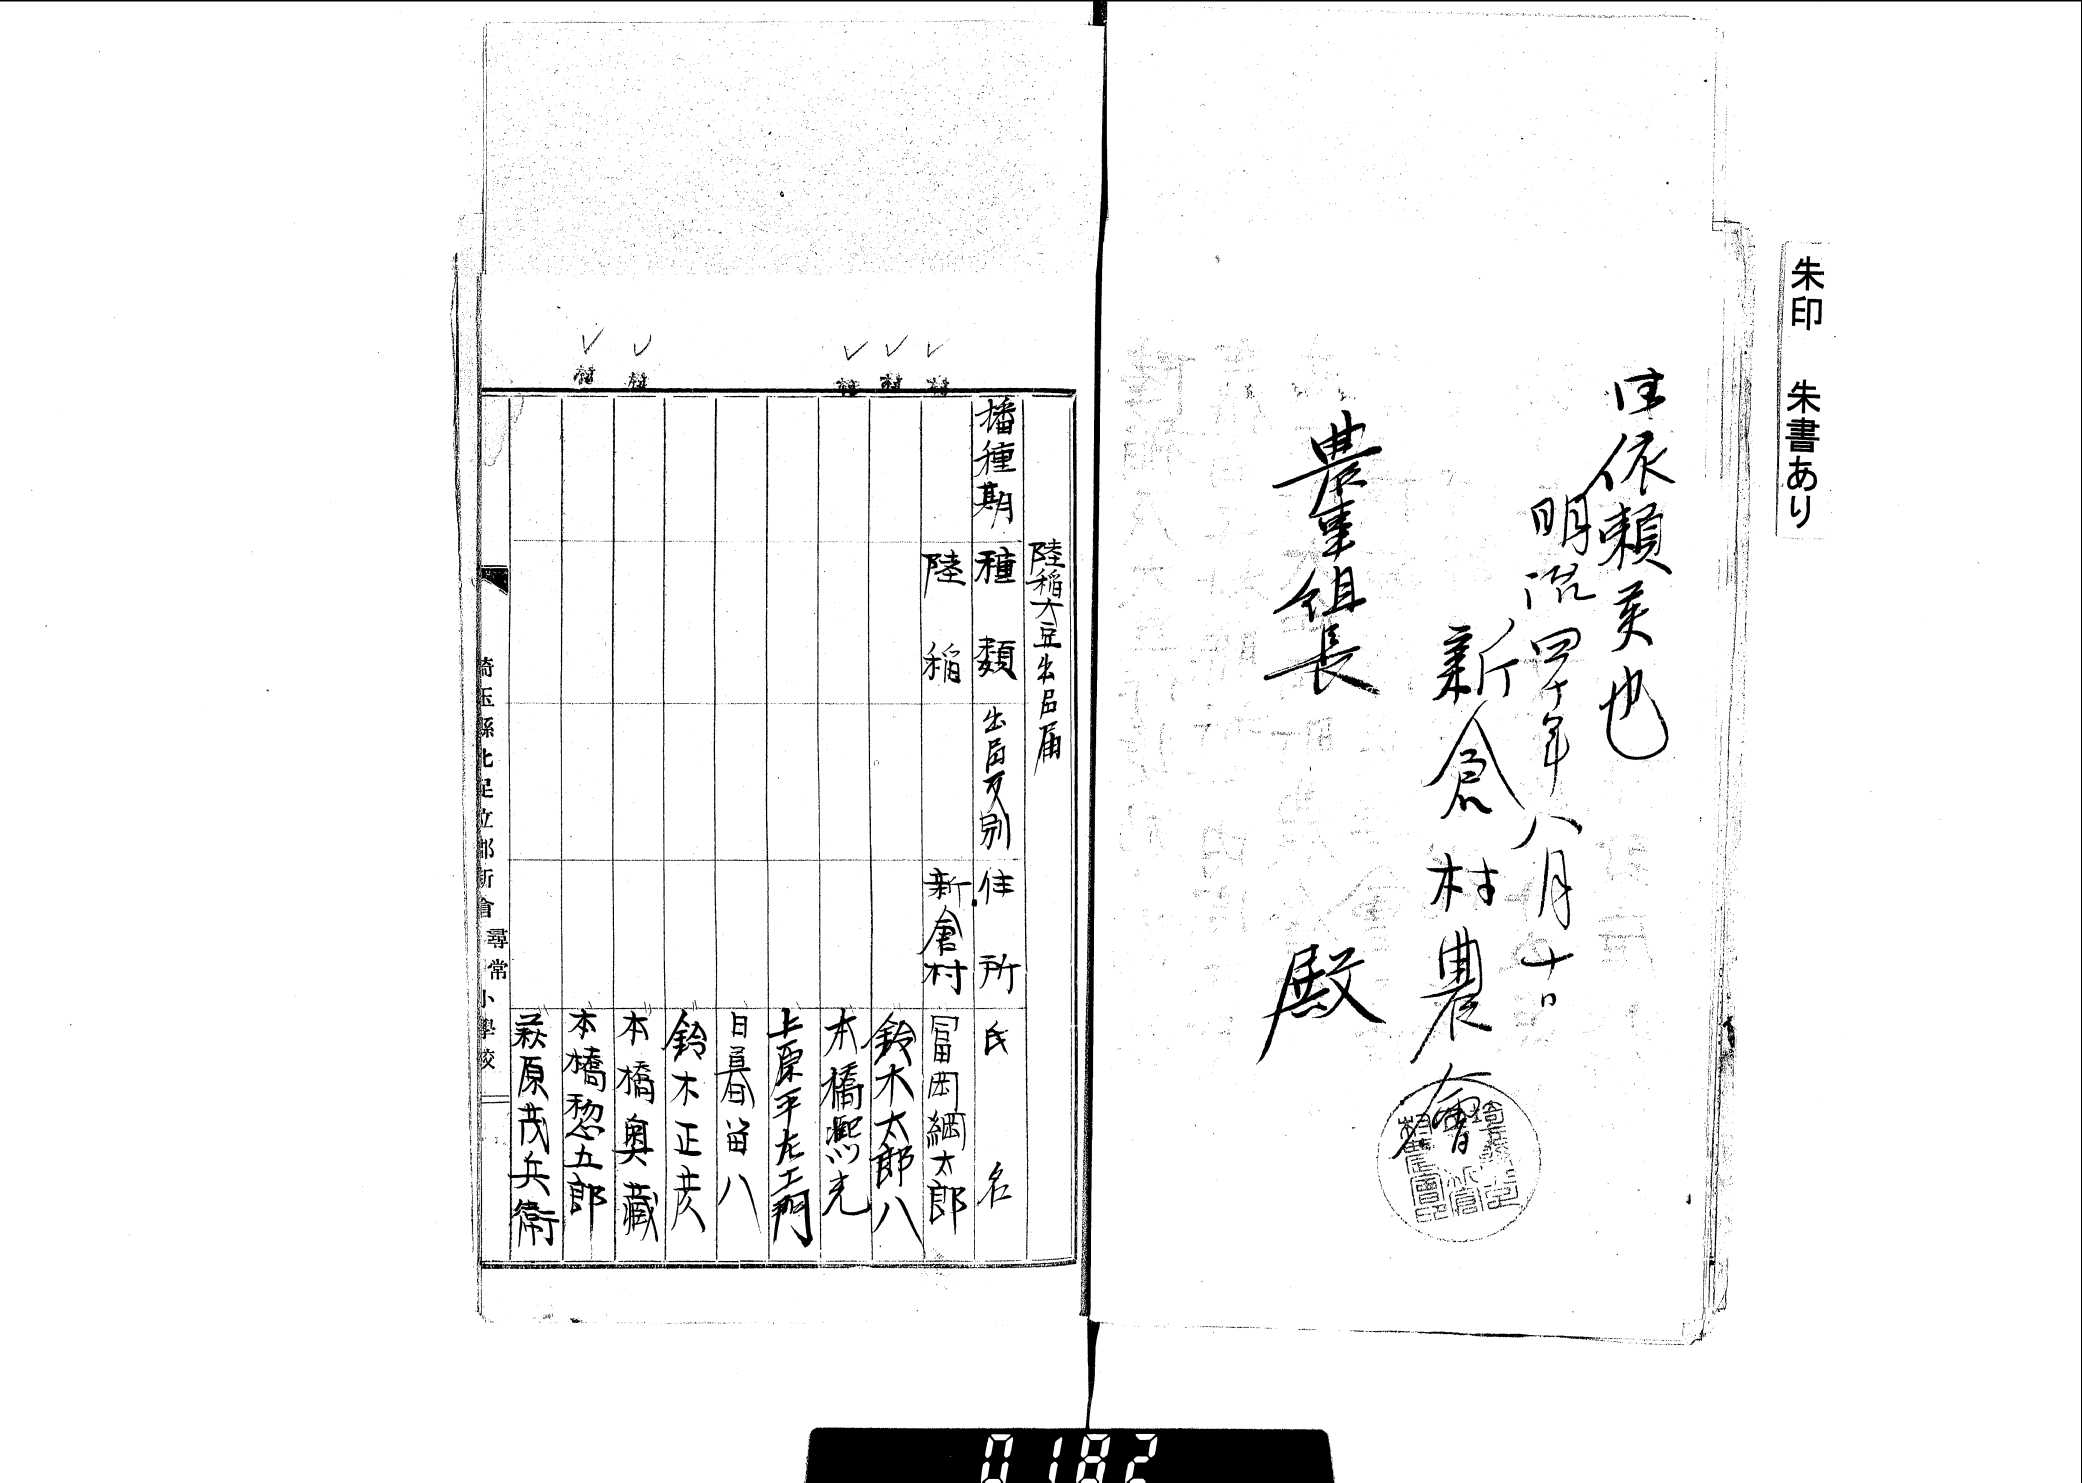 朱印 朱書あり
依頼候也
明治四十年八月十日
新倉村農會
農事組長 殿
陸稲大豆出品届
播種期 種類 出品反別 住所 氏名
陸稲 新倉村 冨岡綱太郎
鈴木太郎八
本橋熙光
上原平左エ門
日暮留八
鈴木正彦
本橋奥蔵
本橋惣五郎
萩原茂兵衛
埼玉縣北足立郡新倉尋常小學校
0182